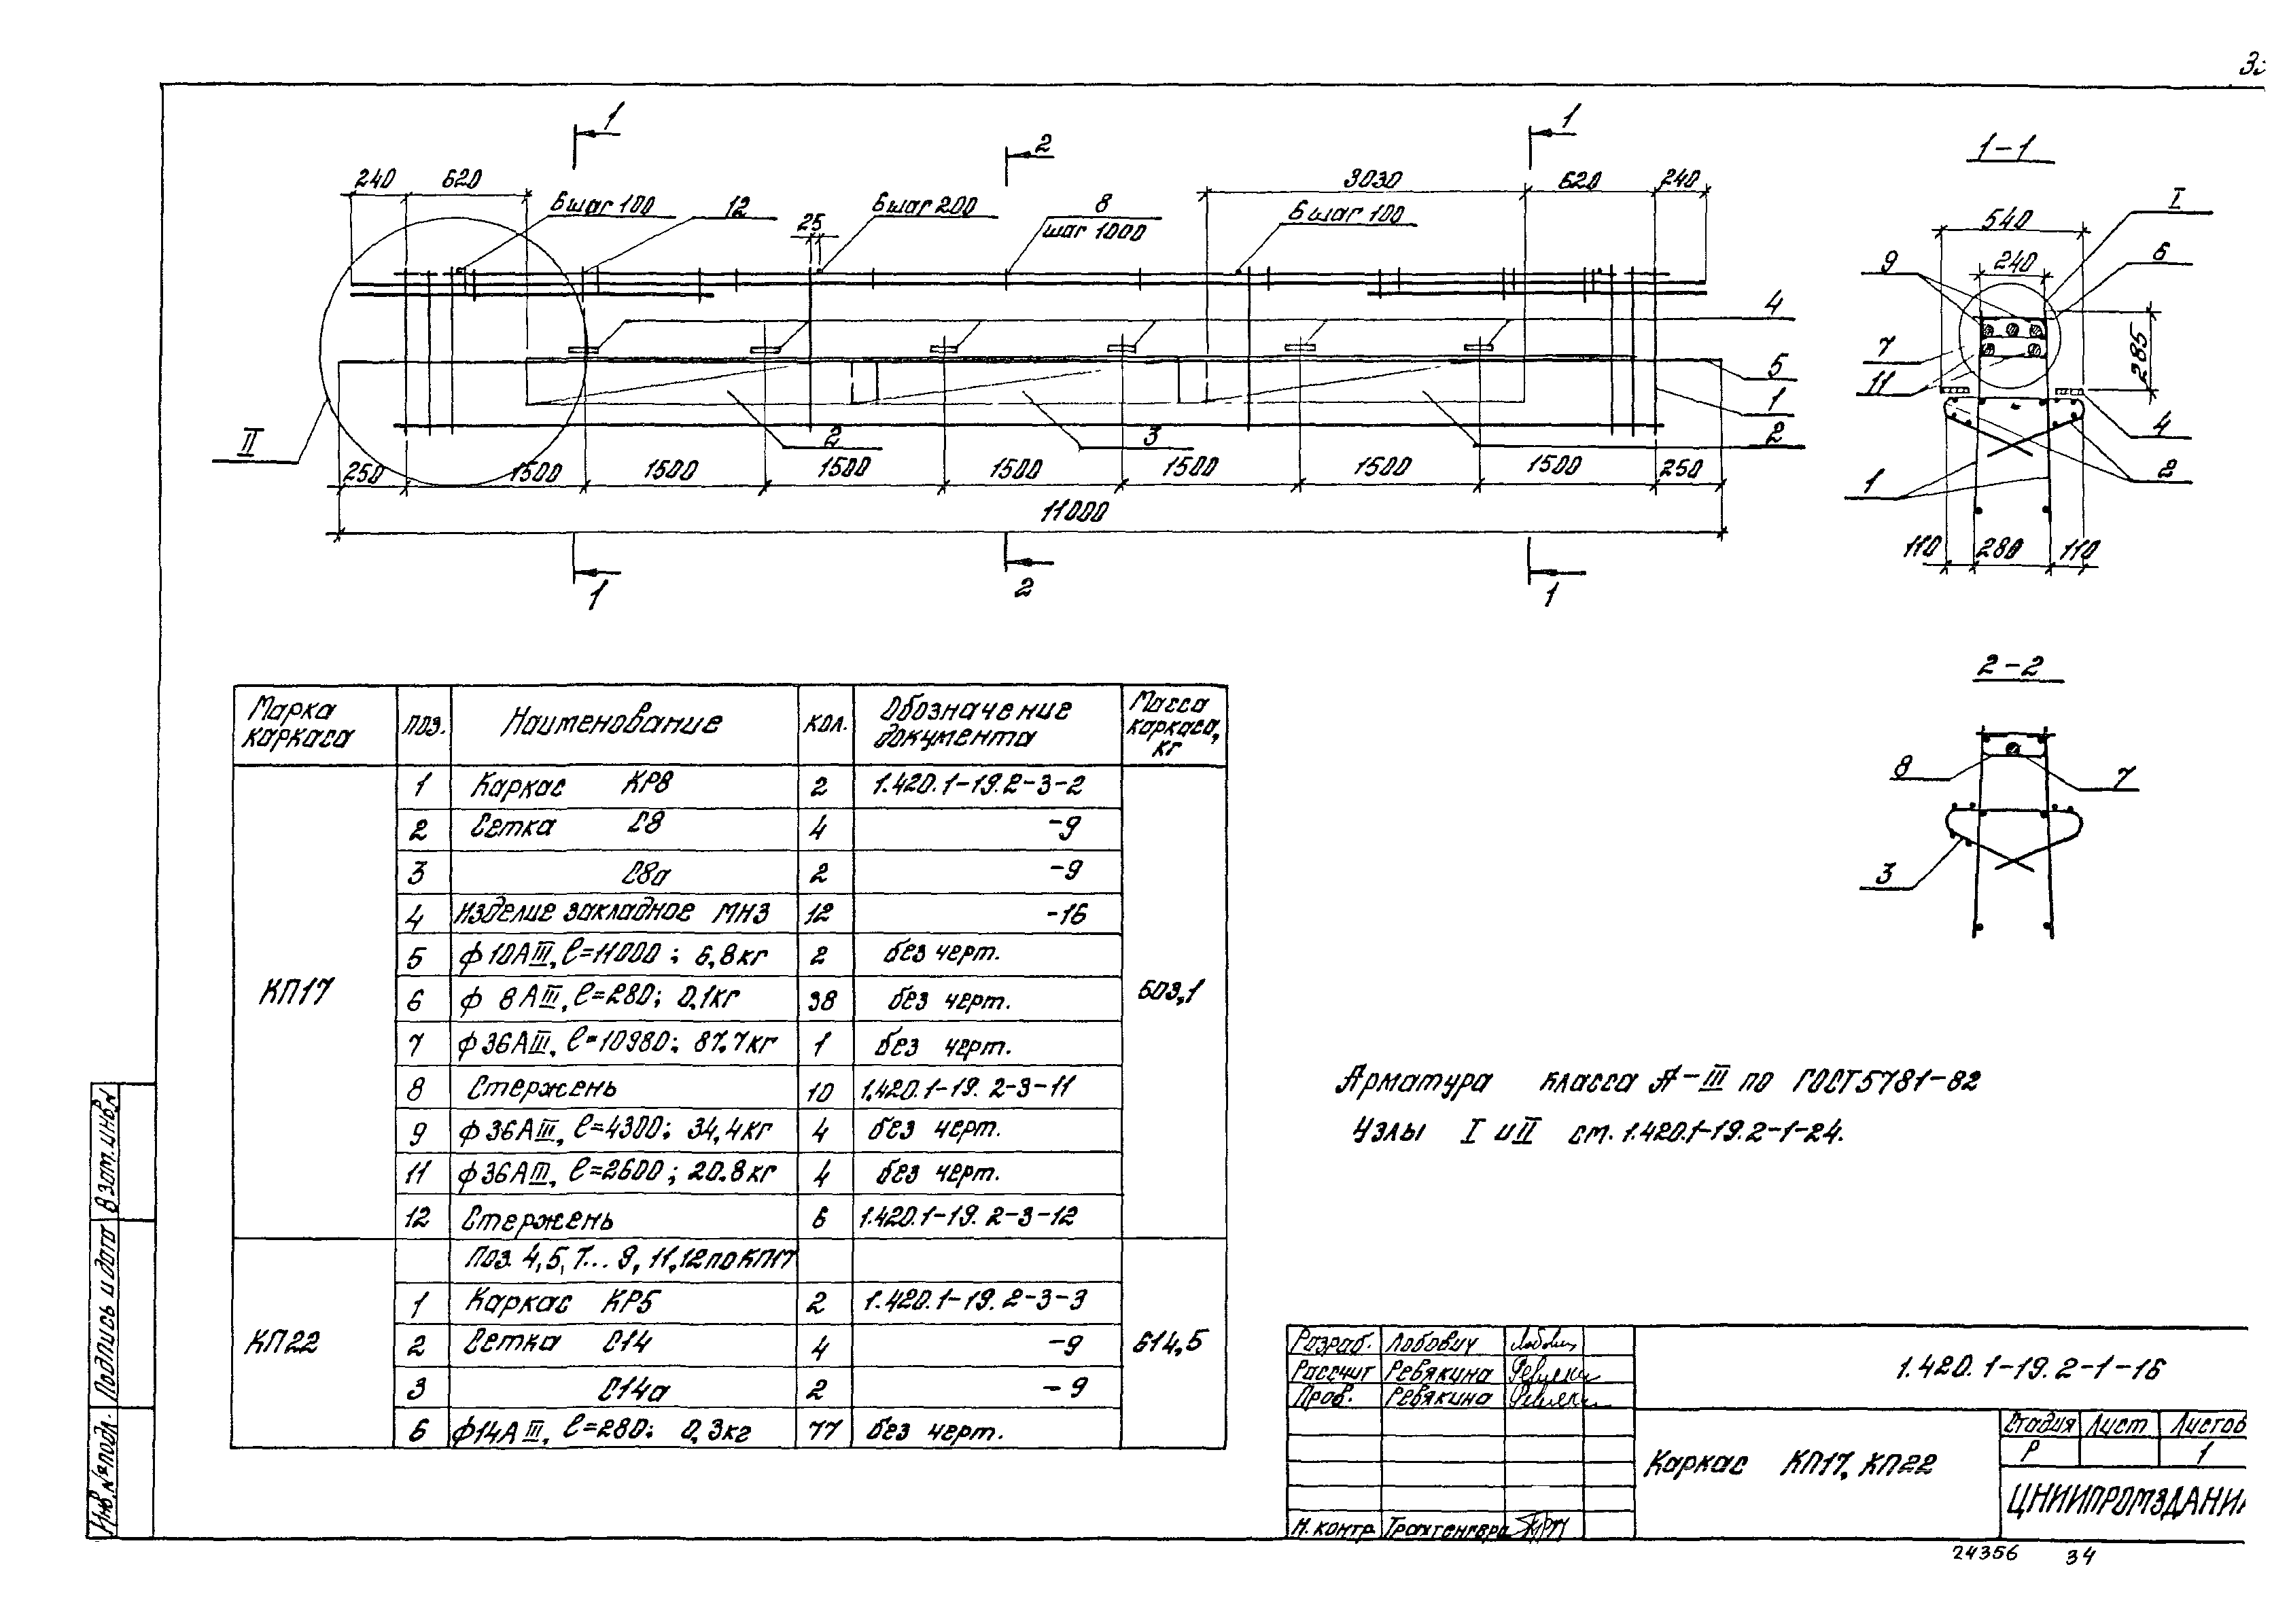 1
1
2
1-1
240
620
3030
620
240
I
6 шаг 100
12
6 шаг 200
8
шаг 1000
6 шаг 100
25
540
9
240
6
4
285
7
5
11
1
II
2
3
2
4
250
1500
1500
1500
1500
1500
1500
1500
250
1
2
11000
110
280
110
1
2
1
2-2
8
7
3
Марка каркаса
поз.
Наименование
кол.
Обозначение документа
Масса каркаса, кг
КП17
603,1
1 Каркас КР8 2 1.420.1-19.2-3-2
2 Сетка С8 4 -9
3 С8а 2 -9
4 Изделие закладное МН3 12 -16
5 ф10АIII, ℓ=11000; 6,8кг 2 без черт.
6 ф 8АIII, ℓ=280; 0,1кг 38 без черт.
7 ф36АIII, ℓ=10980; 87.7кг 1 без черт.
8 Стержень 10 1.420.1-19.2-3-11
9 ф36АIII, ℓ=4300; 34,4кг 4 без черт.
11 ф36АIII, ℓ=2600; 20.8кг 4 без черт.
12 Стержень 6 1.420.1-19.2-3-12
КП22
614,5
Поз. 4,5,7...9,11,12 по КП17
1 Каркас КР5 2 1.420.1-19.2-3-3
2 Сетка С14 4 -9
3 С14а 2 -9
6 ф14АIII, ℓ=280; 0,3кг 77 без черт.
Арматура класса А-III по ГОСТ 5781-82
Узлы I и II см. 1.420.1-19.2-1-24.
Взам.инв.№
Подпись и дата
Инв.№подл.
Разраб. Лобович
Рассчит Ревякина
Пров. Ревякина
Н.контр.
1.420.1-19.2-1-16
Каркас КП17, КП22
Стадия Лист Листов
Р 1
ЦНИИПРОМЗДАНИ
24356 34